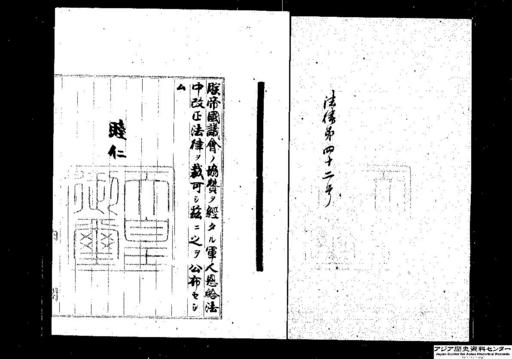 法律第四十二号
朕帝國議會ノ協贊ヲ經タル軍人恩給法
中改正法律ヲ裁可シ茲ニ之ヲ公布セシ
ム
睦仁
天皇
御璽
内閣
アジア歴史資料センター
Japan Center for Asian Historical Records